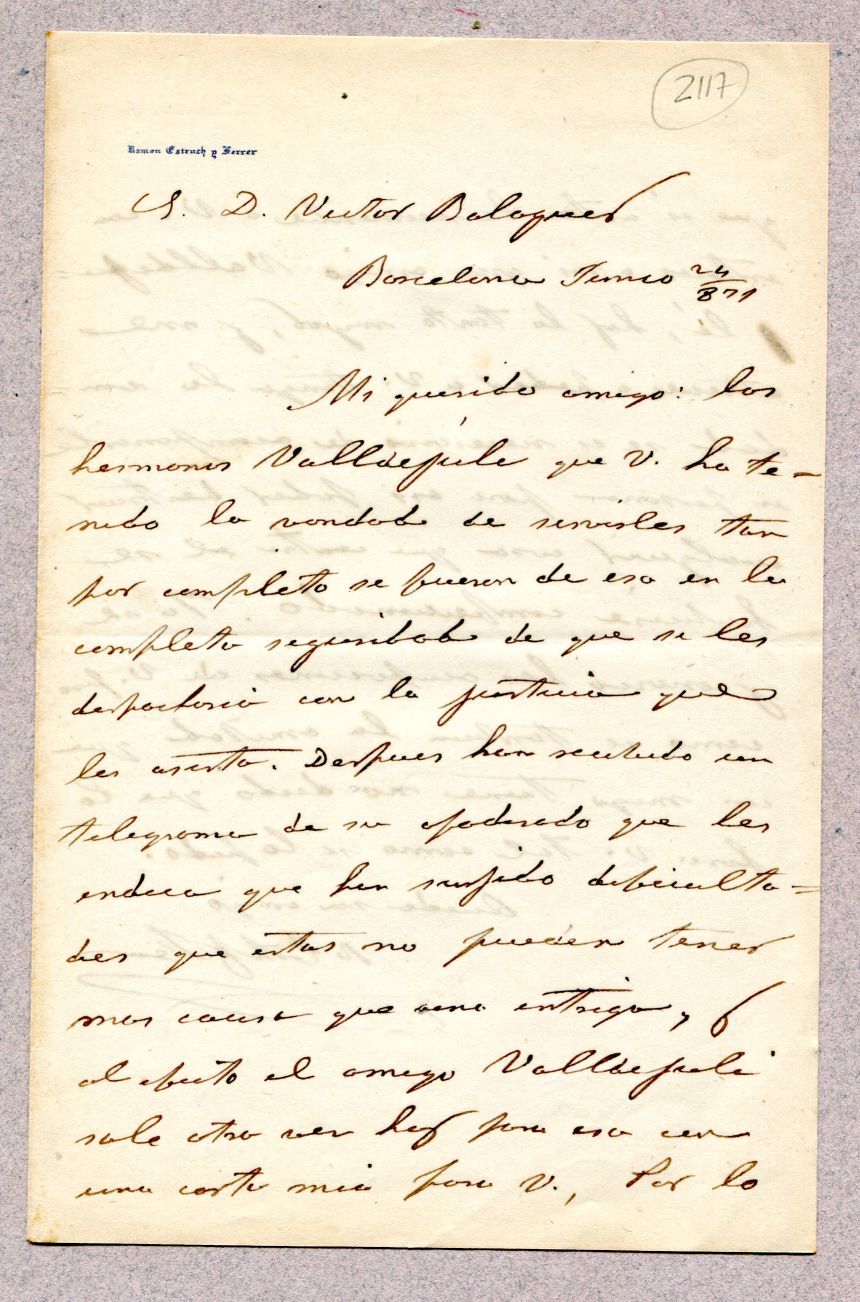 2117
Ramon Estruch y Ferrer
S. D. Victor Balaguer
Barcelona Junio 24/871
Mi querido amigo: los
hermanos Valldejuli que V. ha te=
nido la vondad de servirles tan
por completo se fueron de esa en la
completa seguridad de que se les
despacharia con la justicia que
les asista. Despues han recibido un
telegrama de su apoderado que les
endica que han surjido deficulta=
des que estas no pueden tener
mas causa que una entriga, y
al efecto el amigo Valldejuli
sale otra vez hoy para esa con
una carta mia para V., Por lo